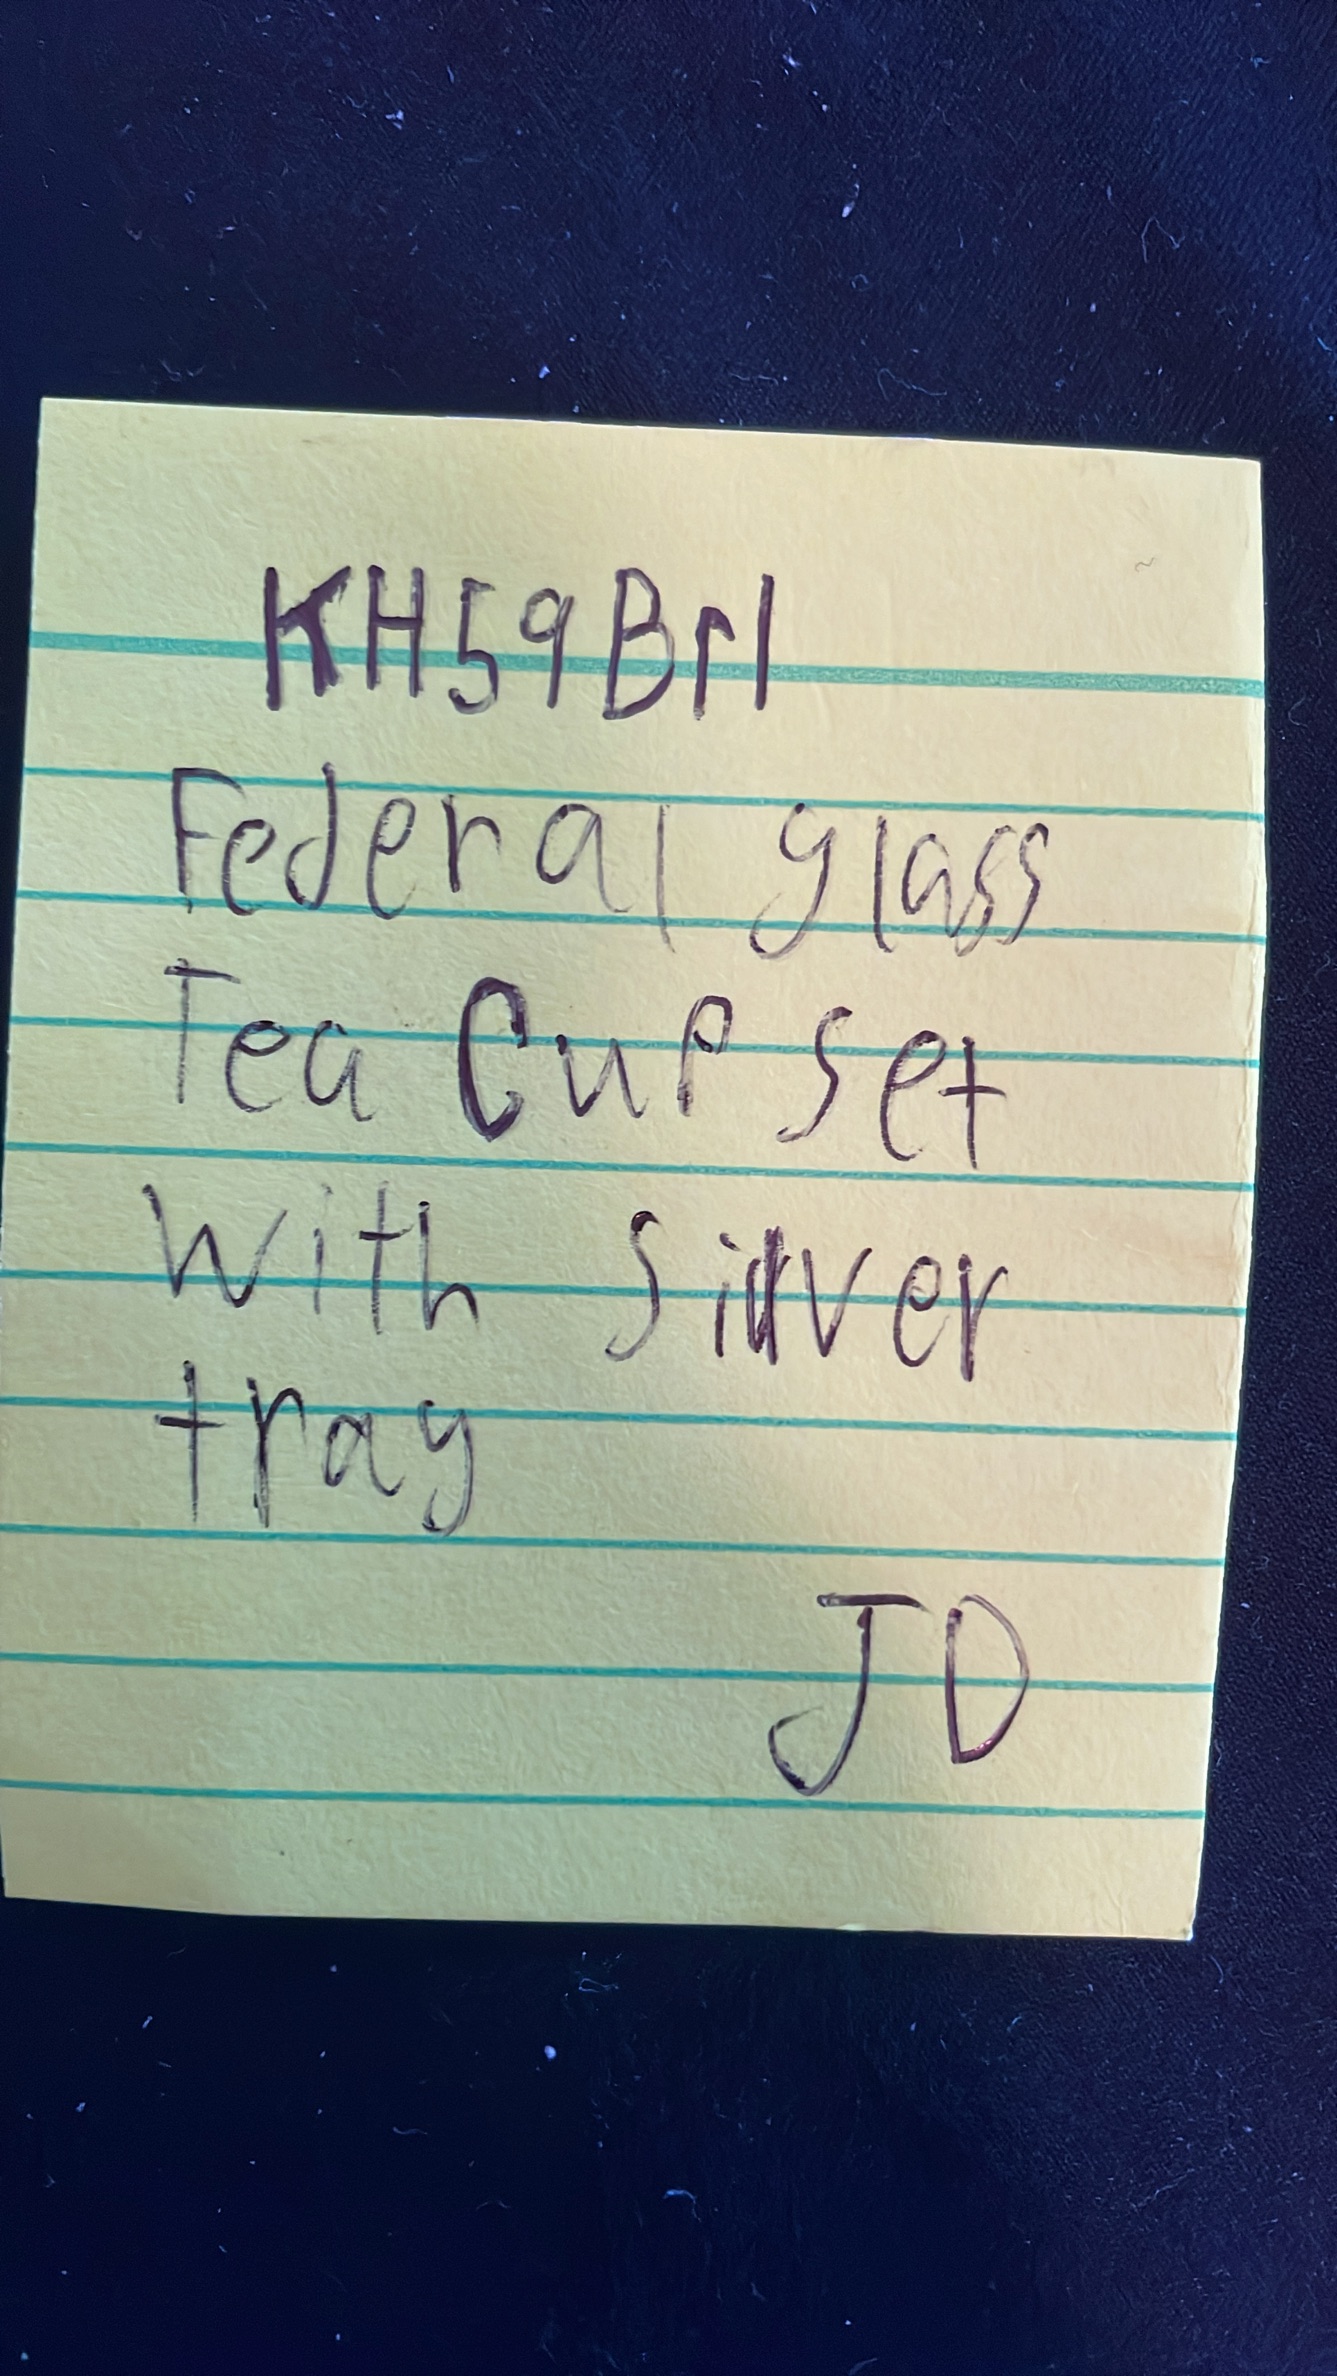 KH59Br1
Federal glass
Tea Cup set
with silver
tray
JD